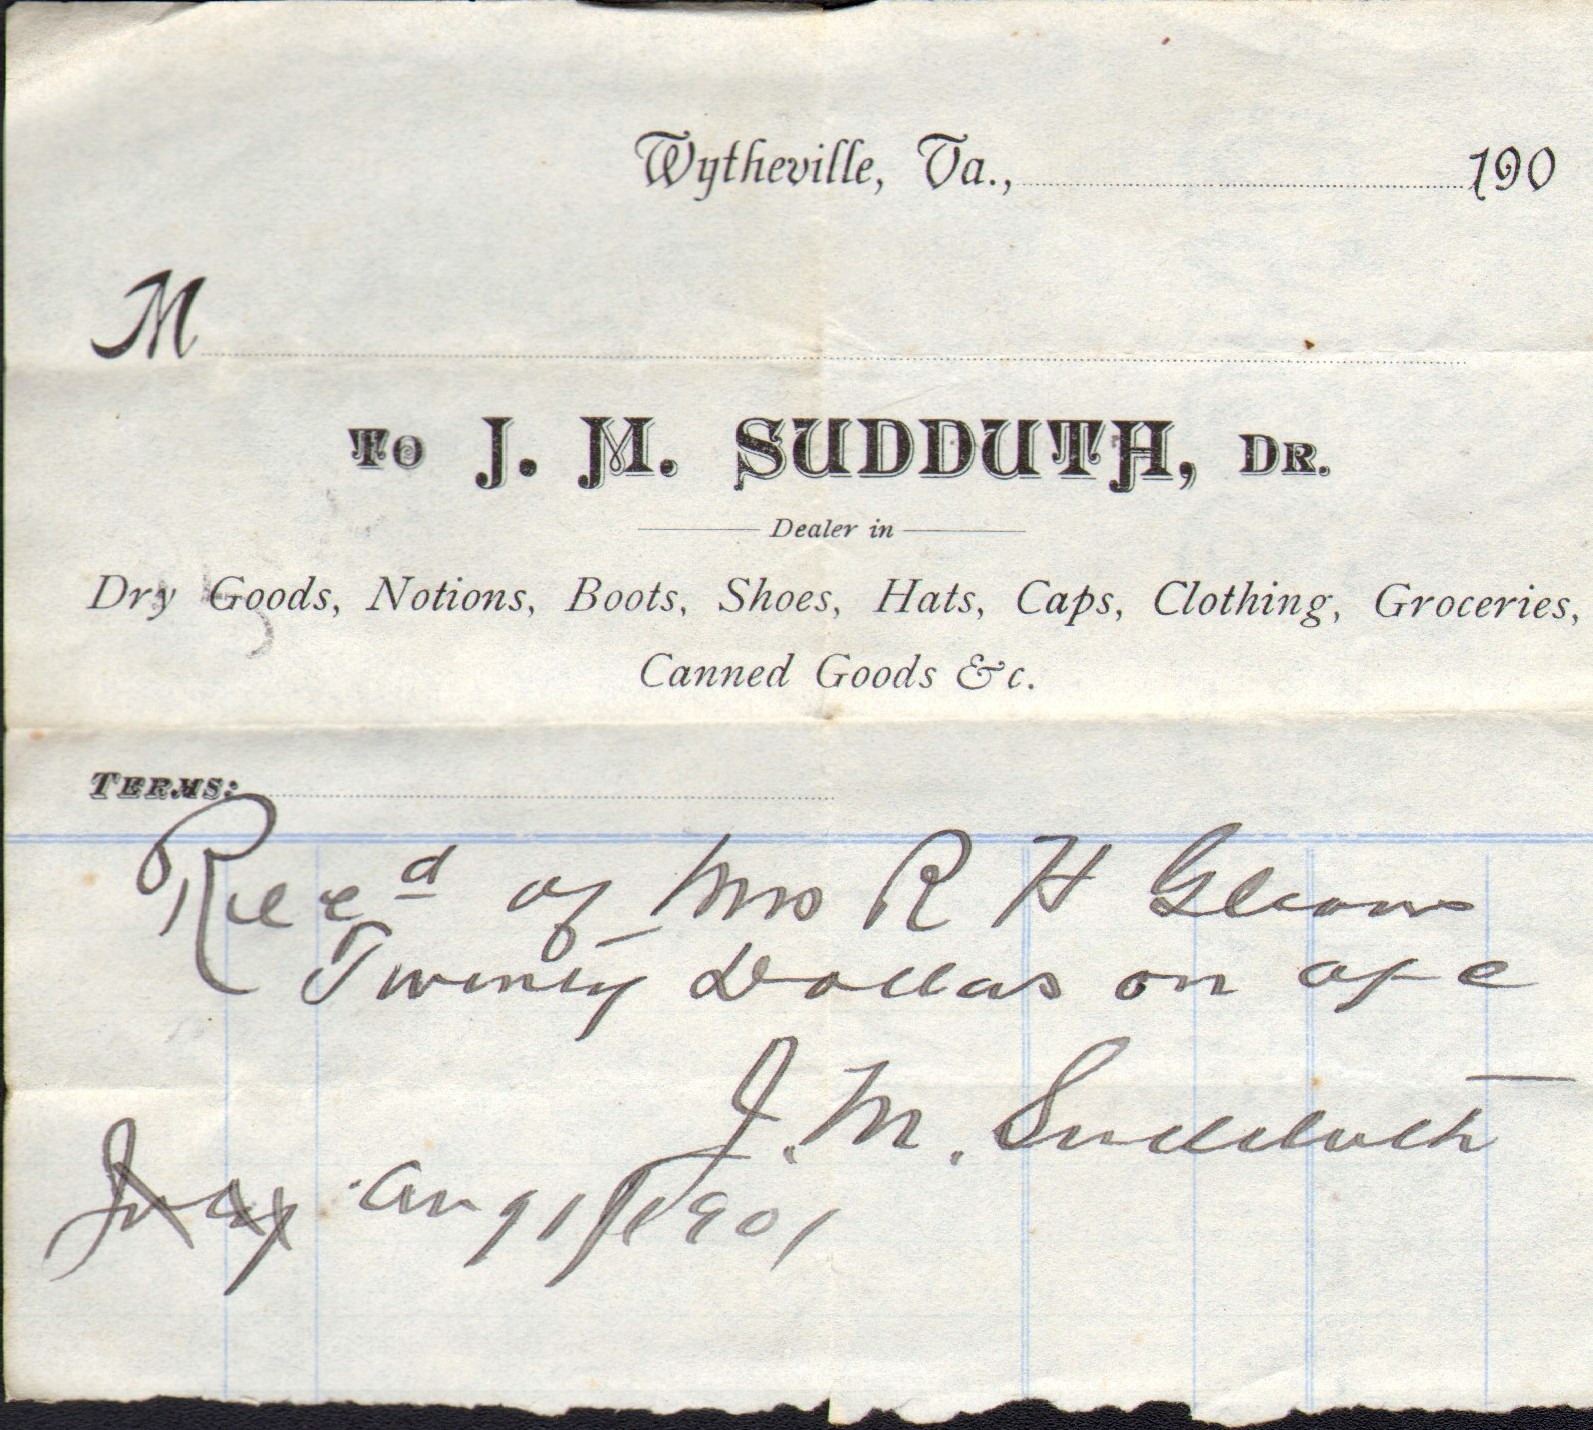 Wytheville, Va., 190
M
TO J. M. SUDDUTH, DR.
Dealer in
Dry Goods, Notions, Boots, Shoes, Hats, Caps, Clothing, Groceries,
Canned Goods &c.
TERMS:
Rece d of Mrs R H Gleaves
Twenty Dollars on a/c
J. M. Sudduth
Aug 1901